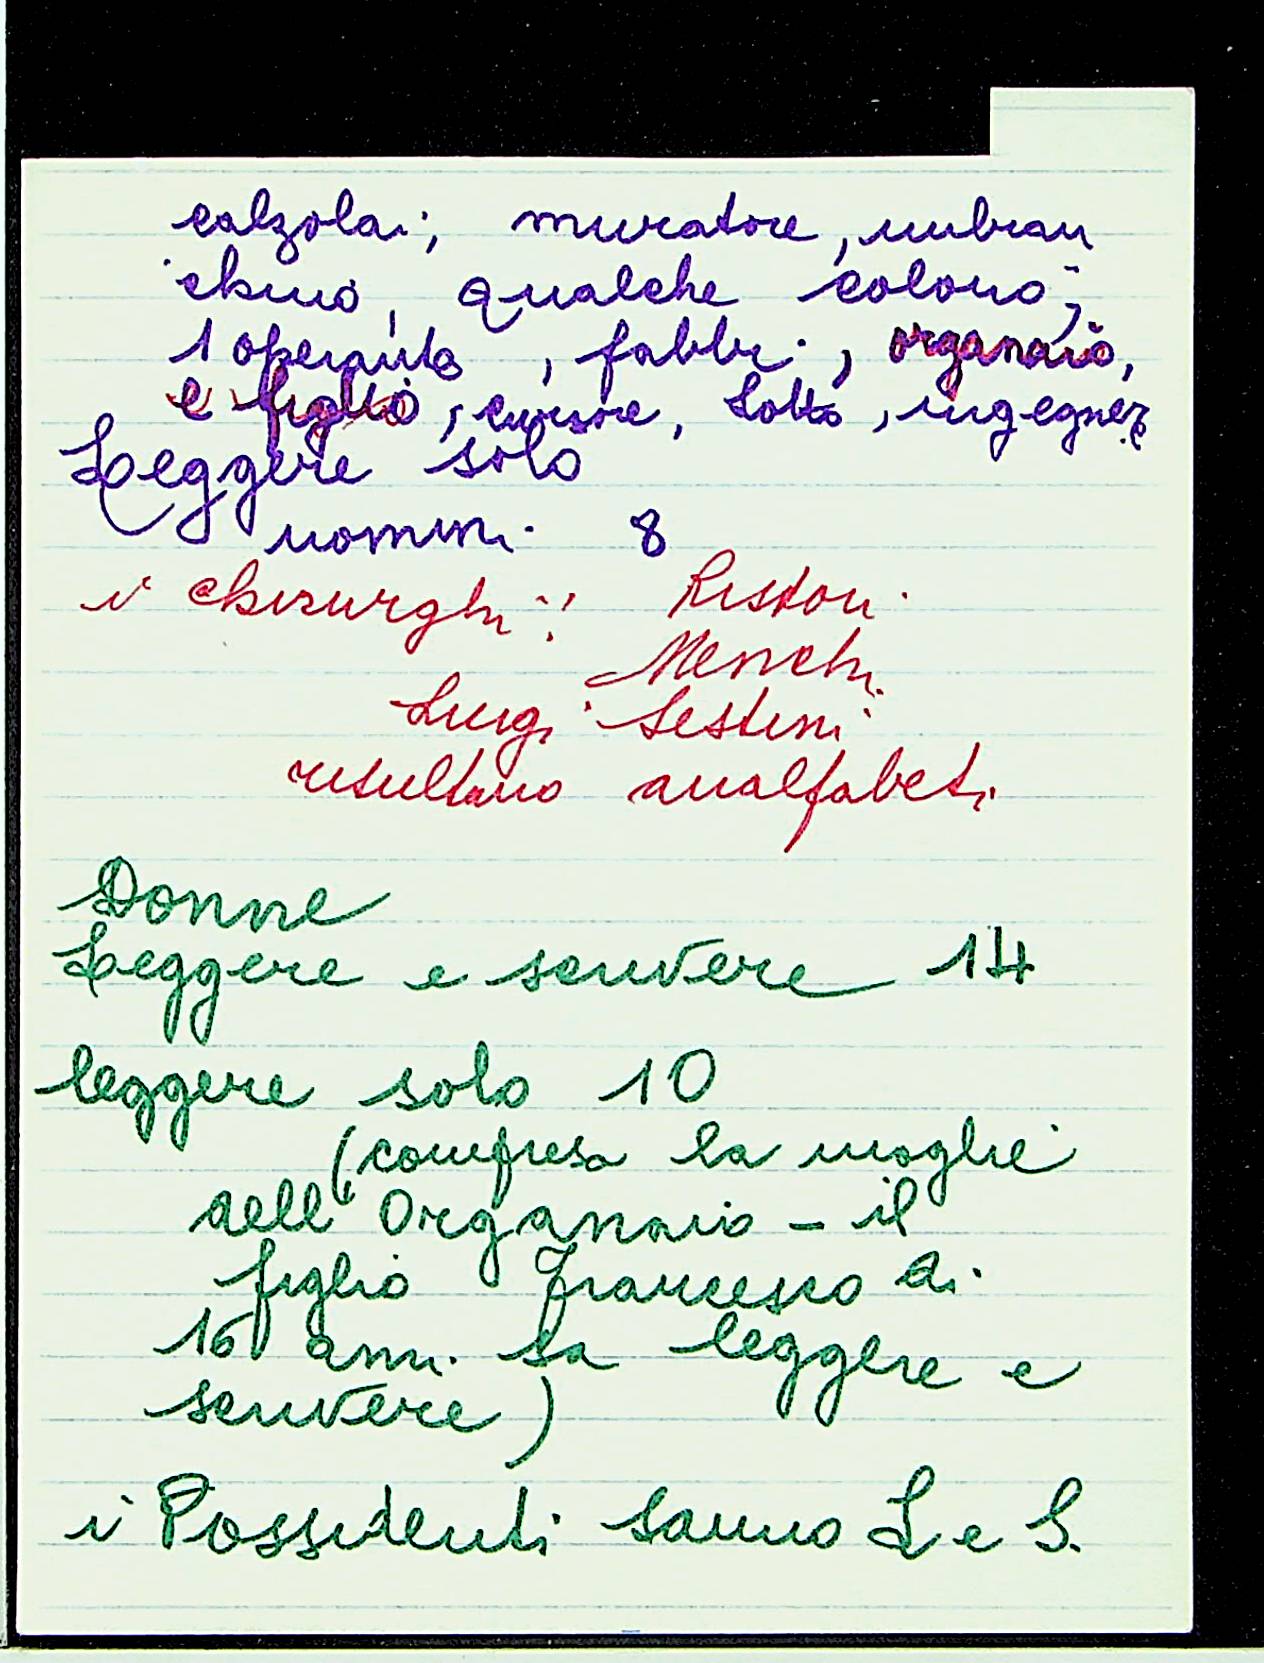 calzolai, muratore, imbian
chino, qualche colono,
1 operante, fabbri, organaio,
e figlio, cursore, sotto, ingegner
Leggere solo
uomini 8
i chirurghi: Ristori
Menchi
Luigi Sestini
risultano analfabeti
Donne
Leggere e scrivere 14
leggere solo 10
(compresa la moglie
dell'Organaio - il
figlio Francesco di
16 anni sa leggere e
scrivere)
i Possidenti sanno L e S.